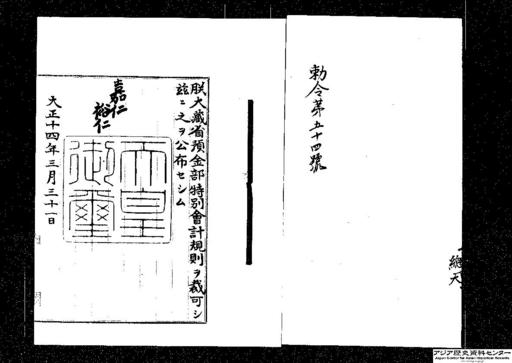 勅令第五十四號
朕大藏省預金部特別會計規則ヲ裁可シ
茲ニ之ヲ公布セシム
嘉仁
裕仁
天皇御璽
大正十四年三月三十一日
アジア歴史資料センター
Japan Center for Asian Historical Records